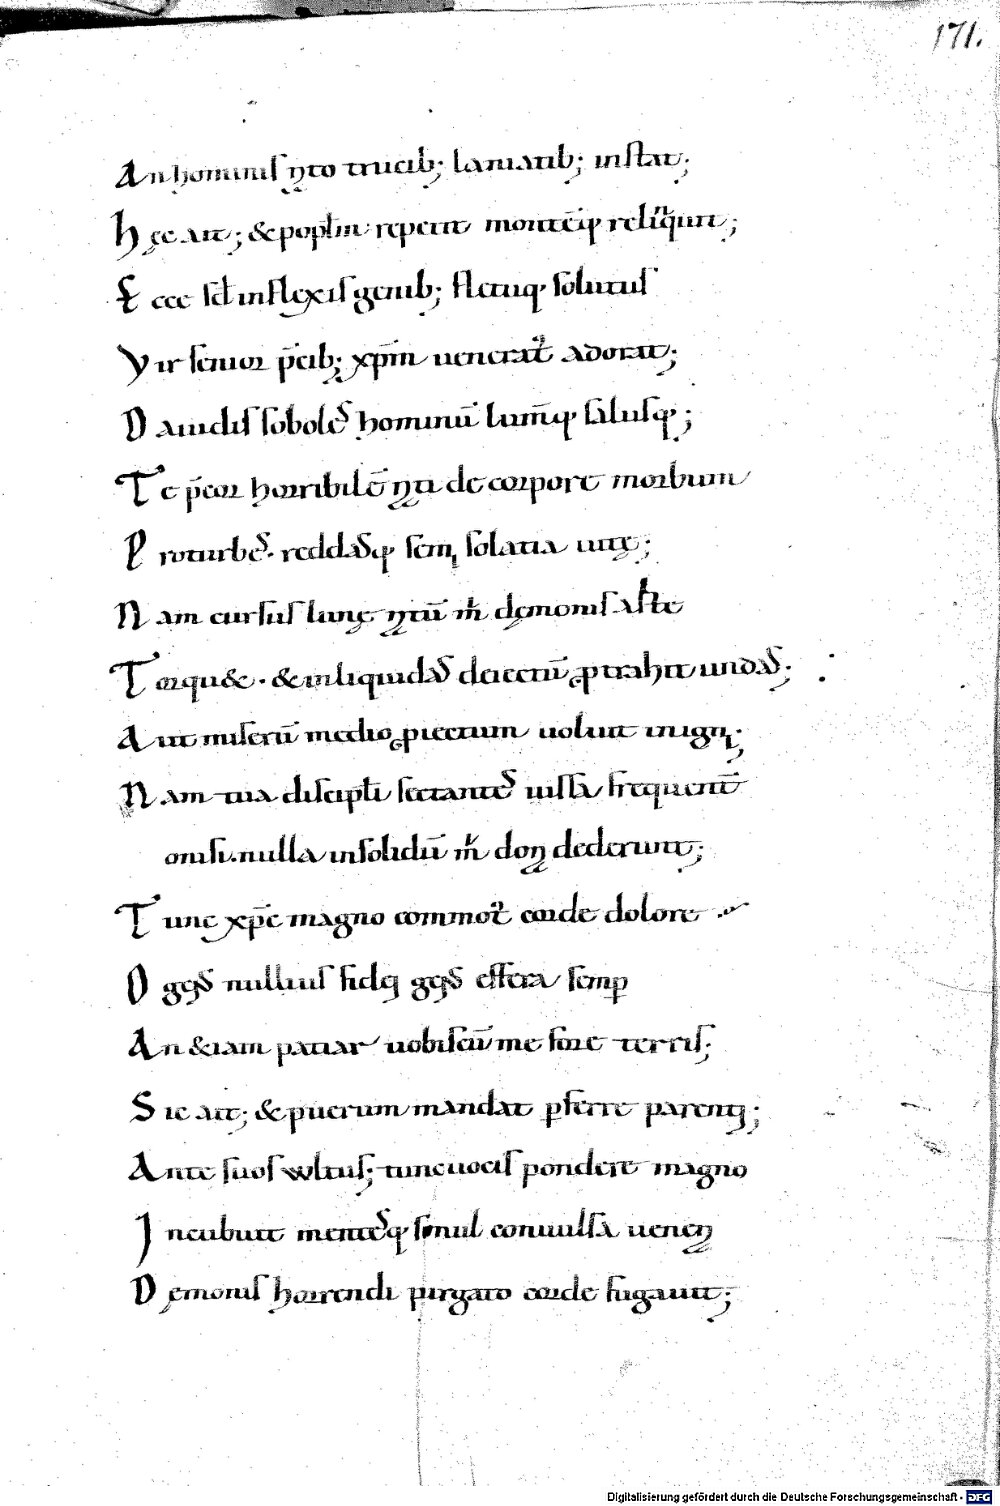 171.
An hominis n̄to trucib; laniatib; instat;
Hęc ait; & pop̄lm repetit montēq; reliq̄nt;
Ecce sed inflexis genib; fletuq; solutus
Vir senior p̄cib; xp̄m uenerat᷑ adorat;
Dauidis soboles hominū lumq̄; salusq;
Te p̄cor horribilē nr̄i de corpore morbum
Proturbes. reddasq; semi solatia uitę;
Nam cursus lunę natū mr̄ dęmonis arte
Torqu&. & in liquidas deiectū ptrahit undas;
Aut miserū medio piectum uoluit inigni;
Nam tua discipl̄i sectantes iussa frequent̄
omsi. nulla insolidū mr̄ dona dederunt;
Tunc xp̄c magno commot᷑ corde dolore
O gens nullius fidei gens effera semp
An &iam patiar uobiscū me fore terris;
Sic ait; & puerum mandat pferre parenti;
Ante suos wltus; tunc uocis pondere magno
Incubuit mentesq; simul conuulsa uenena
Dęmonis horrendi purgato corde fugauit;
Digitalisierung gefördert durch die Deutsche Forschungsgemeinschaft - DFG